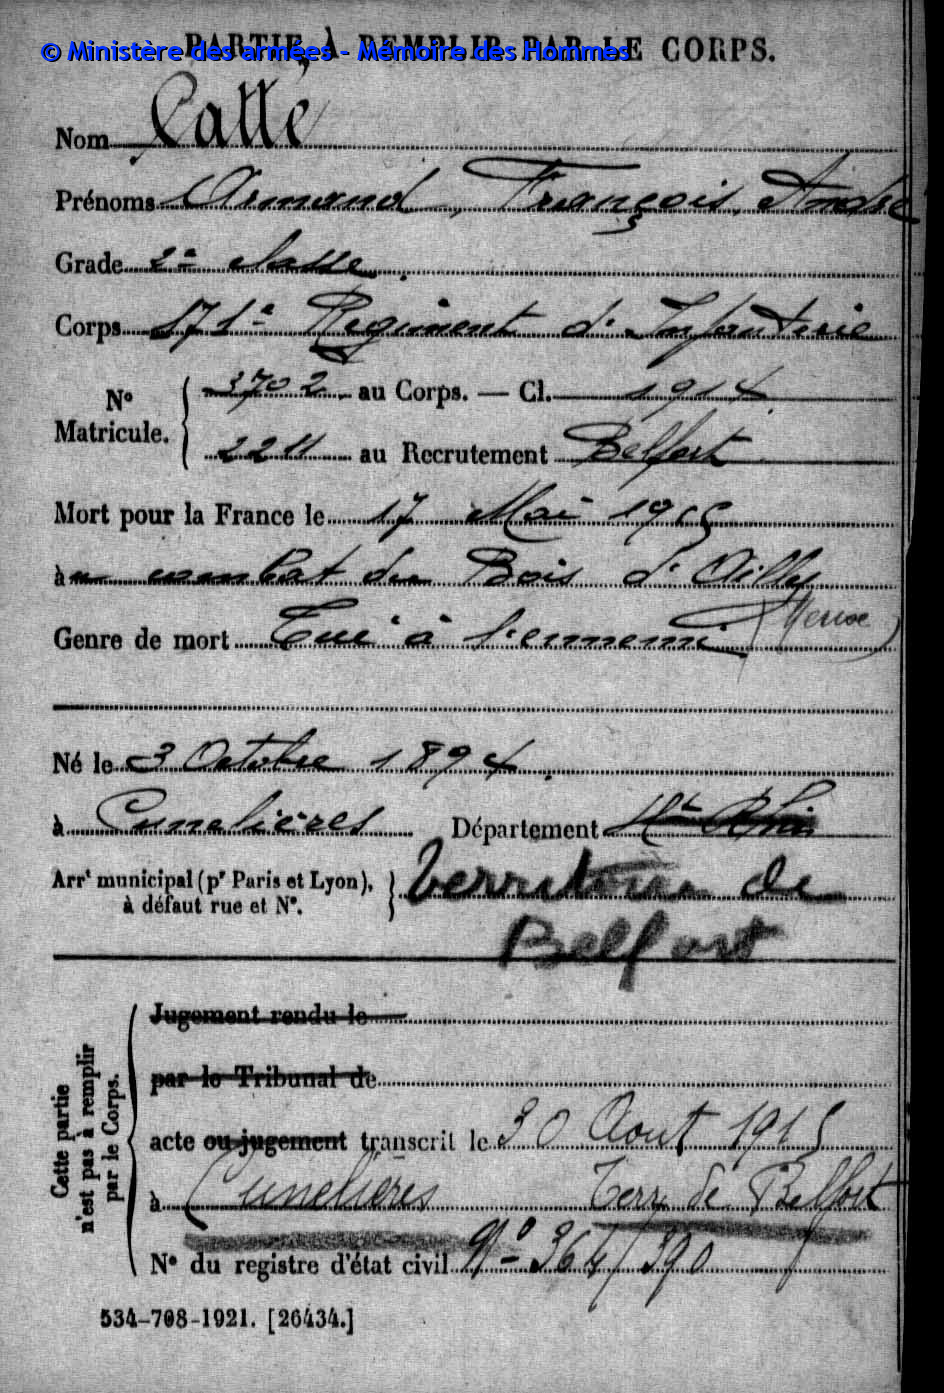 PARTIE À REMPLIR PAR LE CORPS.
© Ministère des armées - Mémoire des Hommes
Nom Catté
Prénoms Armand, François, André
Grade 2e classe.
Corps 171e Régiment d'Infanterie
No Matricule. { 3702 au Corps. — Cl. 1914
2211 au Recrutement Belfort
Mort pour la France le 17 Mai 1915
àu combat du Bois d'Ailly
(Meuse)
Genre de mort Tué à l'ennemi
Né le 3 Octobre 1894.
à Cunelières Département Ht Rhin
Arrt municipal (pr Paris et Lyon), à défaut rue et No. } Territoire de
Belfort
Cette partie n'est pas à remplir par le Corps.
Jugement rendu le
par le Tribunal de
acte ou jugement transcrit le 30 Aout 1915
à Cunelières Terre de Belfort
No du registre d'état civil No 364/390
534-708-1921. [26434.]